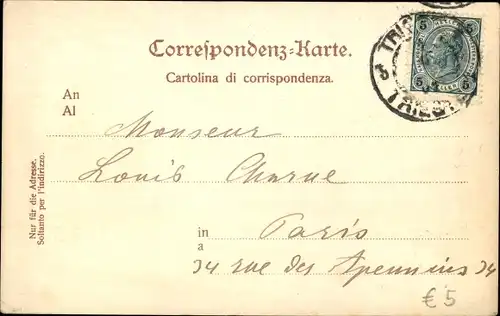 Correspondenz-Karte.
Cartolina di corrispondenza.
An
Al
Monseur
Louis Charue
in
a
Paris
34 rue des Apennins 34
Nur für die Adresse.
Soltanto per l'indirizzo.
TRIEST
5 5
€ 5